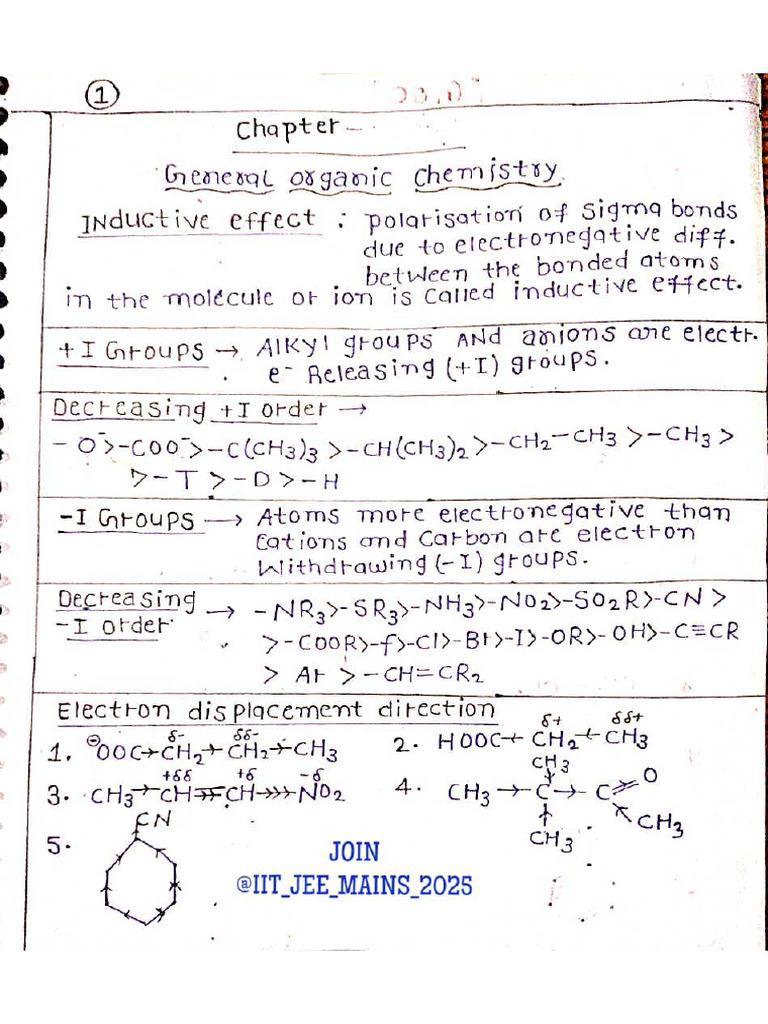 1
Chapter -
General organic chemistry
Inductive effect : polarisation of Sigma bonds
due to electronegative diff.
between the bonded atoms
in the molecule or ion is called inductive effect.
+I Groups → Alkyl groups And anions are electr.
e⁻ Releasing (+I) groups.
Decreasing +I order →
-O⁻>-COO⁻>-C(CH3)3>-CH(CH3)2>-CH2-CH3>-CH3>
>-T>-D>-H
-I Groups → Atoms more electronegative than
Cations and Carbon are electron
Withdrawing (-I) groups.
Decreasing → -NR3>-SR3>-NH3>-NO2>-SO2R>-CN>
-I order. >-COOR>-f>-Cl>-Br>-I>-OR>-OH>-C≡CR
> Ar >-CH=CR2
Electron displacement direction
1. ⊖OOC→CH2→CH2→CH3 δ- δδ-
2. HOOC←CH2←CH3 δ+ δδ+
3. CH3→CH⇒CH→→→NO2 +δδ +δ -δ
4. CH3→C→C=O CH3 CH3 CH3
5. CN
JOIN
@IIT_JEE_MAINS_2025